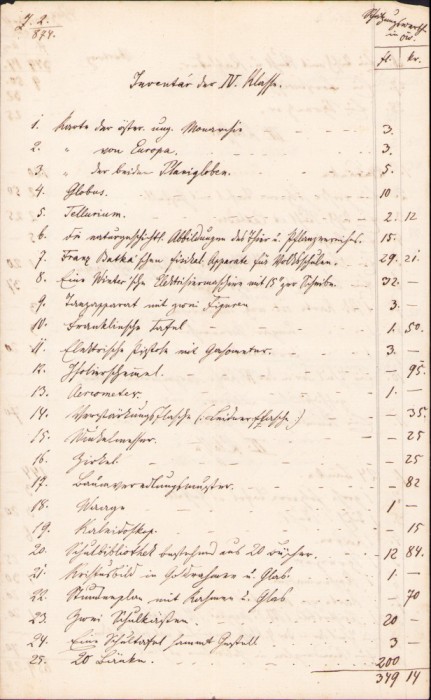 Z. 2.
874.
Schätzungswerth
in öw.
fl. kr.
Inventar der IV. Klasse.
1. Karte der österr. ung. Monarchie 3.
2. " von Europa. 3.
3. " der beiden Planigloben. 5.
4. Globus. 10
5. Tellurium. 2. 12
6. naturgeschichtl. Abbildungen des Thier u. Pflanzenreiches. 15.
7. Franz Batka'schen fisikal. Apparate für Volksschulen. 29. 21.
8. Eine Winter'sche Elektrisiermaschine mit 15" Scheibe. 32. —
9. Tanzapparat mit zwei Figuren 3. —
10. Franklinsche Tafel 1. 50.
11. Elektrische Pistole mit Gasometer. 3. —
12. Isolierschemel. — 95.
13. Aerometer. 1. —
14. Verstärkungsflasche (: Leidnerflasche :) — 35.
15. Winkelmesser. — 25
16. Zirkel. — 25
17. Baumveredlungsmuster. — 82
18. Waage 1 —
19. Kaleidoskop. — 15
20. Schulbibliothek bestehend aus 20 Bücher. 12 84.
21. Christusbild in Goldrahmen u. Glas. 1. —
22. Stundenplan mit Rahmen u. Glas — 70
23. Zwei Schulkästen. 20 —
24. Eine Schultafel sammt Gestell. 3 —
25. 20 Bänke. 200
349 14